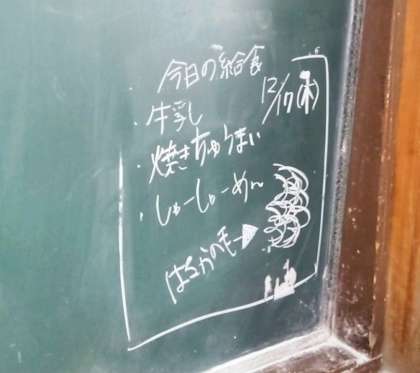 今日の給食
12/17(木)
・牛乳
・焼きちゅうまい
・しゅーしゅーめん
はるかのモー